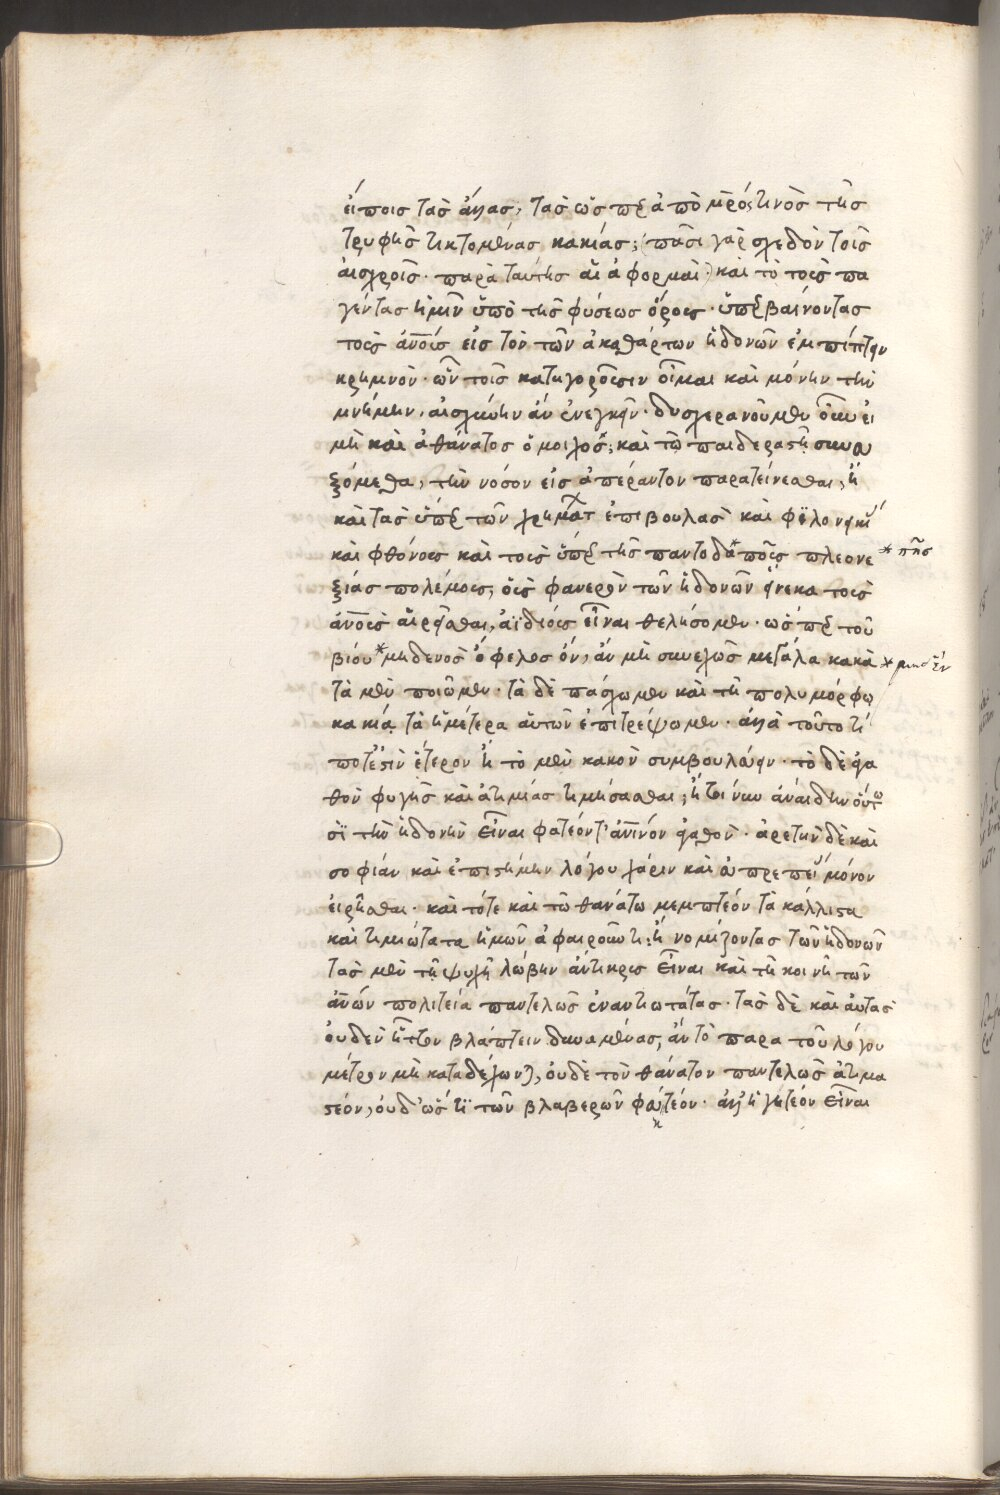 είποις τὰς ἄλλας, τὰς ὥσπερ ἀπὸ μητρός τινος τῆς
τρυφῆς τικτομένας κακίας; (πᾶσι γὰρ σχεδὸν τοῖς
αἰσχροῖς παρὰ ταύτης αἱ ἀφορμαὶ) καὶ τὸ τοὺς πα
γέντας ἡμῖν ὑπὸ τῆς φύσεως ὅρους ὑπερβαίνοντας
τοὺς ἀνους εἰς τὸν τῶν ἀκαθάρτων ἡδονῶν ἐμπίπτειν
κρημνὸν· ὧν τοῖς κατηγοροῦσιν οἶμαι καὶ μόνην τὴν
μνήμην, αἰσχύνην ἂν ἐνεγκεῖν· δυσχερανοῦμεν οὖν εἰ
μὴ καὶ ἀθάνατος ὁ μοιχὸς; καὶ τῷ παιδεραστῇ συνα
ξόμεθα, τὴν νόσον εἰς ἀπέραντον παρατείνεσθαι, ἢ
καὶ τὰς ὑπὲρ τῶν χρημάτ ἐπιβουλὰς καὶ φιλονεικί
καὶ φθόνους καὶ τοὺς ὑπὲρ τῆς παντοδα*ποῦς πλεονε * πῆς
ξίας πολέμους, οὓς φανερὸν τῶν ἡδονῶν εἵνεκα τοὺς
ἀνους αἱρεῖσθαι, ἀϊδίους εἶναι θελήσομεν· ὥσπερ τοῦ
βίου * μηδενὸς ὄφελος ὄν, ἂν μὴ συνεχῶς μεγάλα κακὰ *
τὰ μὲν ποιῶμεν· τὰ δὲ πάσχωμεν καὶ τῇ πολυμόρφῳ
κακίᾳ τὰ ἡμέτερα αὐτῶν ἐπιτρέψωμεν· ἀλλὰ τοῦτο τί
ποτέστὶν ἕτερον ἢ τὸ μὲν κακὸν συμβουλεύειν· τὸ δὲ ἀγα
θὸν φυγῆς καὶ ἀτιμίας τιμήσασθαι; ἤτοι νῦν ἀναίδην οὕτω
σὶ τὴν ἡδονὴν εἶναι φατέον τἀνινὸν ἀγαθὸν· ἀρετὴν δὲ καὶ
σοφίαν καὶ ἐπιστήμην λόγου χάριν καὶ εὐπρεπεί μόνον
εἰρῆσθαι· καὶ τότε καὶ τῷ θανάτῳ μεμπτέον τὰ κάλλιστα
καὶ τιμιώτατα ἡμῶν ἀφαιροῦντι: ἢ νομίζοντας τῶν ἡδονῶν
τὰς μὲν τῇ ψυχῇ λώβην ἄντικρις εἶναι καὶ τῇ κοινῇ τῶν
ἀνων πολιτεία παντελῶς ἐναντιωτάτας· τὰς δὲ καὶ αὐτὰς
οὐδὲν ἧττον βλάπτειν δυναμένας, ἂν τὸ παρα τοῦ λόγου
μέτρον μὴ καταδέχωντ, οὐδὲ τὸν θάνατον παντελῶς ἀτιμα
στέον, οὐδ' ὥς τι τῶν βλαβερῶν φευκτέον· ἀλλ' ἡγητέον εἶναι